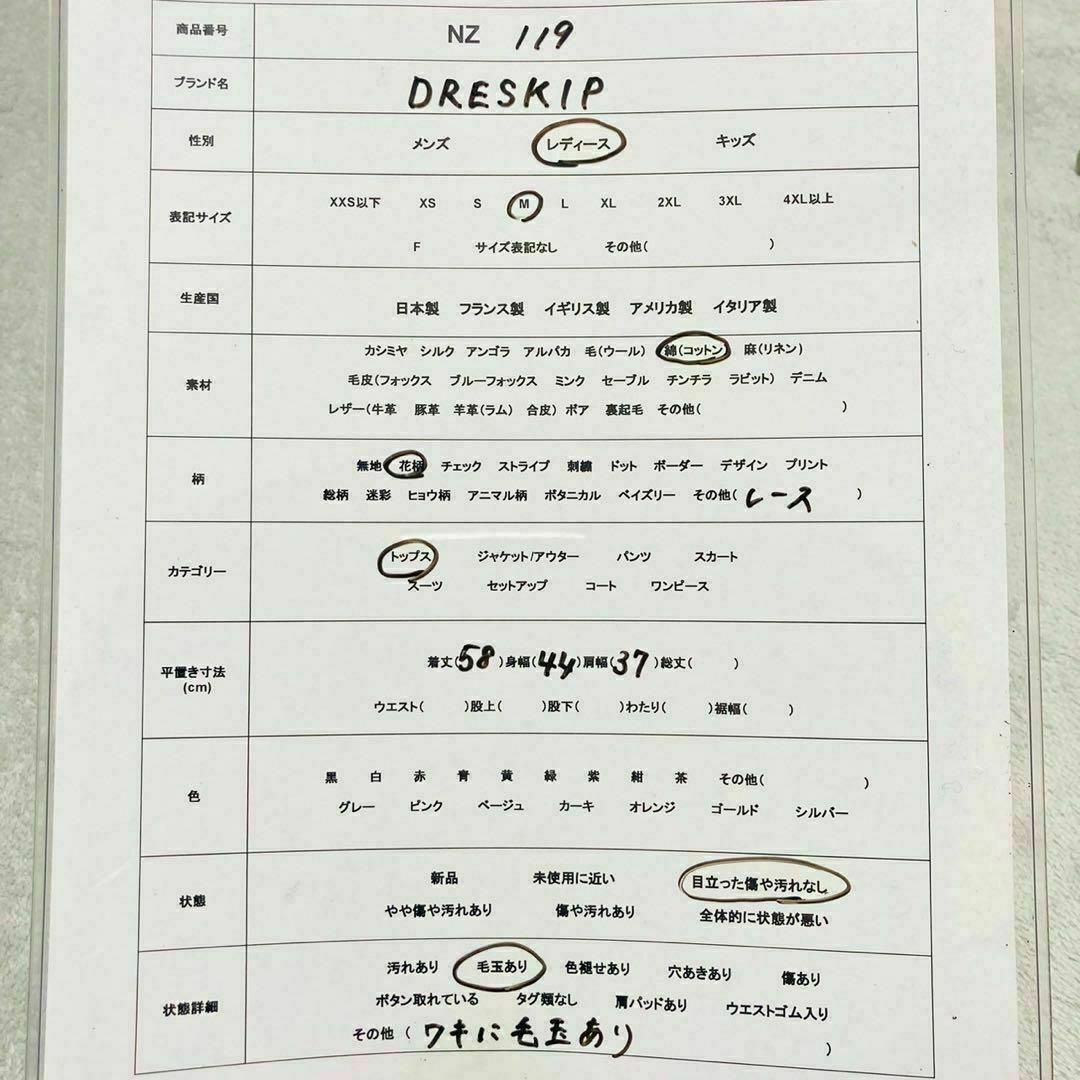 商品番号 NZ 119
ブランド名 DRESKIP
性別 メンズ レディース キッズ
表記サイズ
XXS以下 XS S M L XL 2XL 3XL 4XL以上
F サイズ表記なし その他( )
生産国 日本製 フランス製 イギリス製 アメリカ製 イタリア製
素材
カシミヤ シルク アンゴラ アルパカ 毛(ウール) 綿(コットン) 麻(リネン)
毛皮(フォックス ブルーフォックス ミンク セーブル チンチラ ラビット) デニム
レザー(牛革 豚革 羊革(ラム) 合皮) ボア 裏起毛 その他( )
柄
無地 花柄 チェック ストライプ 刺繍 ドット ボーダー デザイン プリント
総柄 迷彩 ヒョウ柄 アニマル柄 ボタニカル ペイズリー その他(レース )
カテゴリー
トップス ジャケット/アウター パンツ スカート
スーツ セットアップ コート ワンピース
平置き寸法
(cm)
着丈(58)身幅(44)肩幅(37)総丈( )
ウエスト( )股上( )股下( )わたり( )裾幅( )
色
黒 白 赤 青 黄 緑 紫 紺 茶 その他( )
グレー ピンク ベージュ カーキ オレンジ ゴールド シルバー
状態
新品 未使用に近い 目立った傷や汚れなし
やや傷や汚れあり 傷や汚れあり 全体的に状態が悪い
状態詳細
汚れあり 毛玉あり 色褪せあり 穴あきあり 傷あり
ボタン取れている タグ類なし 肩パッドあり ウエストゴム入り
その他 ( ワキに毛玉あり )